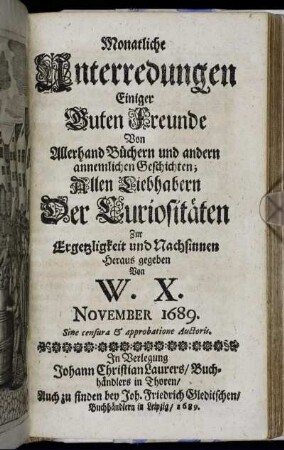 Monatliche
Unterredungen
Einiger
Guten Freunde
Von
Allerhand Büchern und andern
annemlichen Geschichten;
Allen Liebhabern
Der Curiositäten
Zur
Ergetzligkeit und Nachsinnen
Heraus gegeben
Von
W. X.
NOVEMBER 1689.
Sine censura & approbatione Auctoris.
In Verlegung
Johann Christian Laurers/ Buch-
händlers in Thoren/
Auch zu finden bey Joh. Friedrich Gleditschen/
Buchhändlern in Leipzig/ 1689.